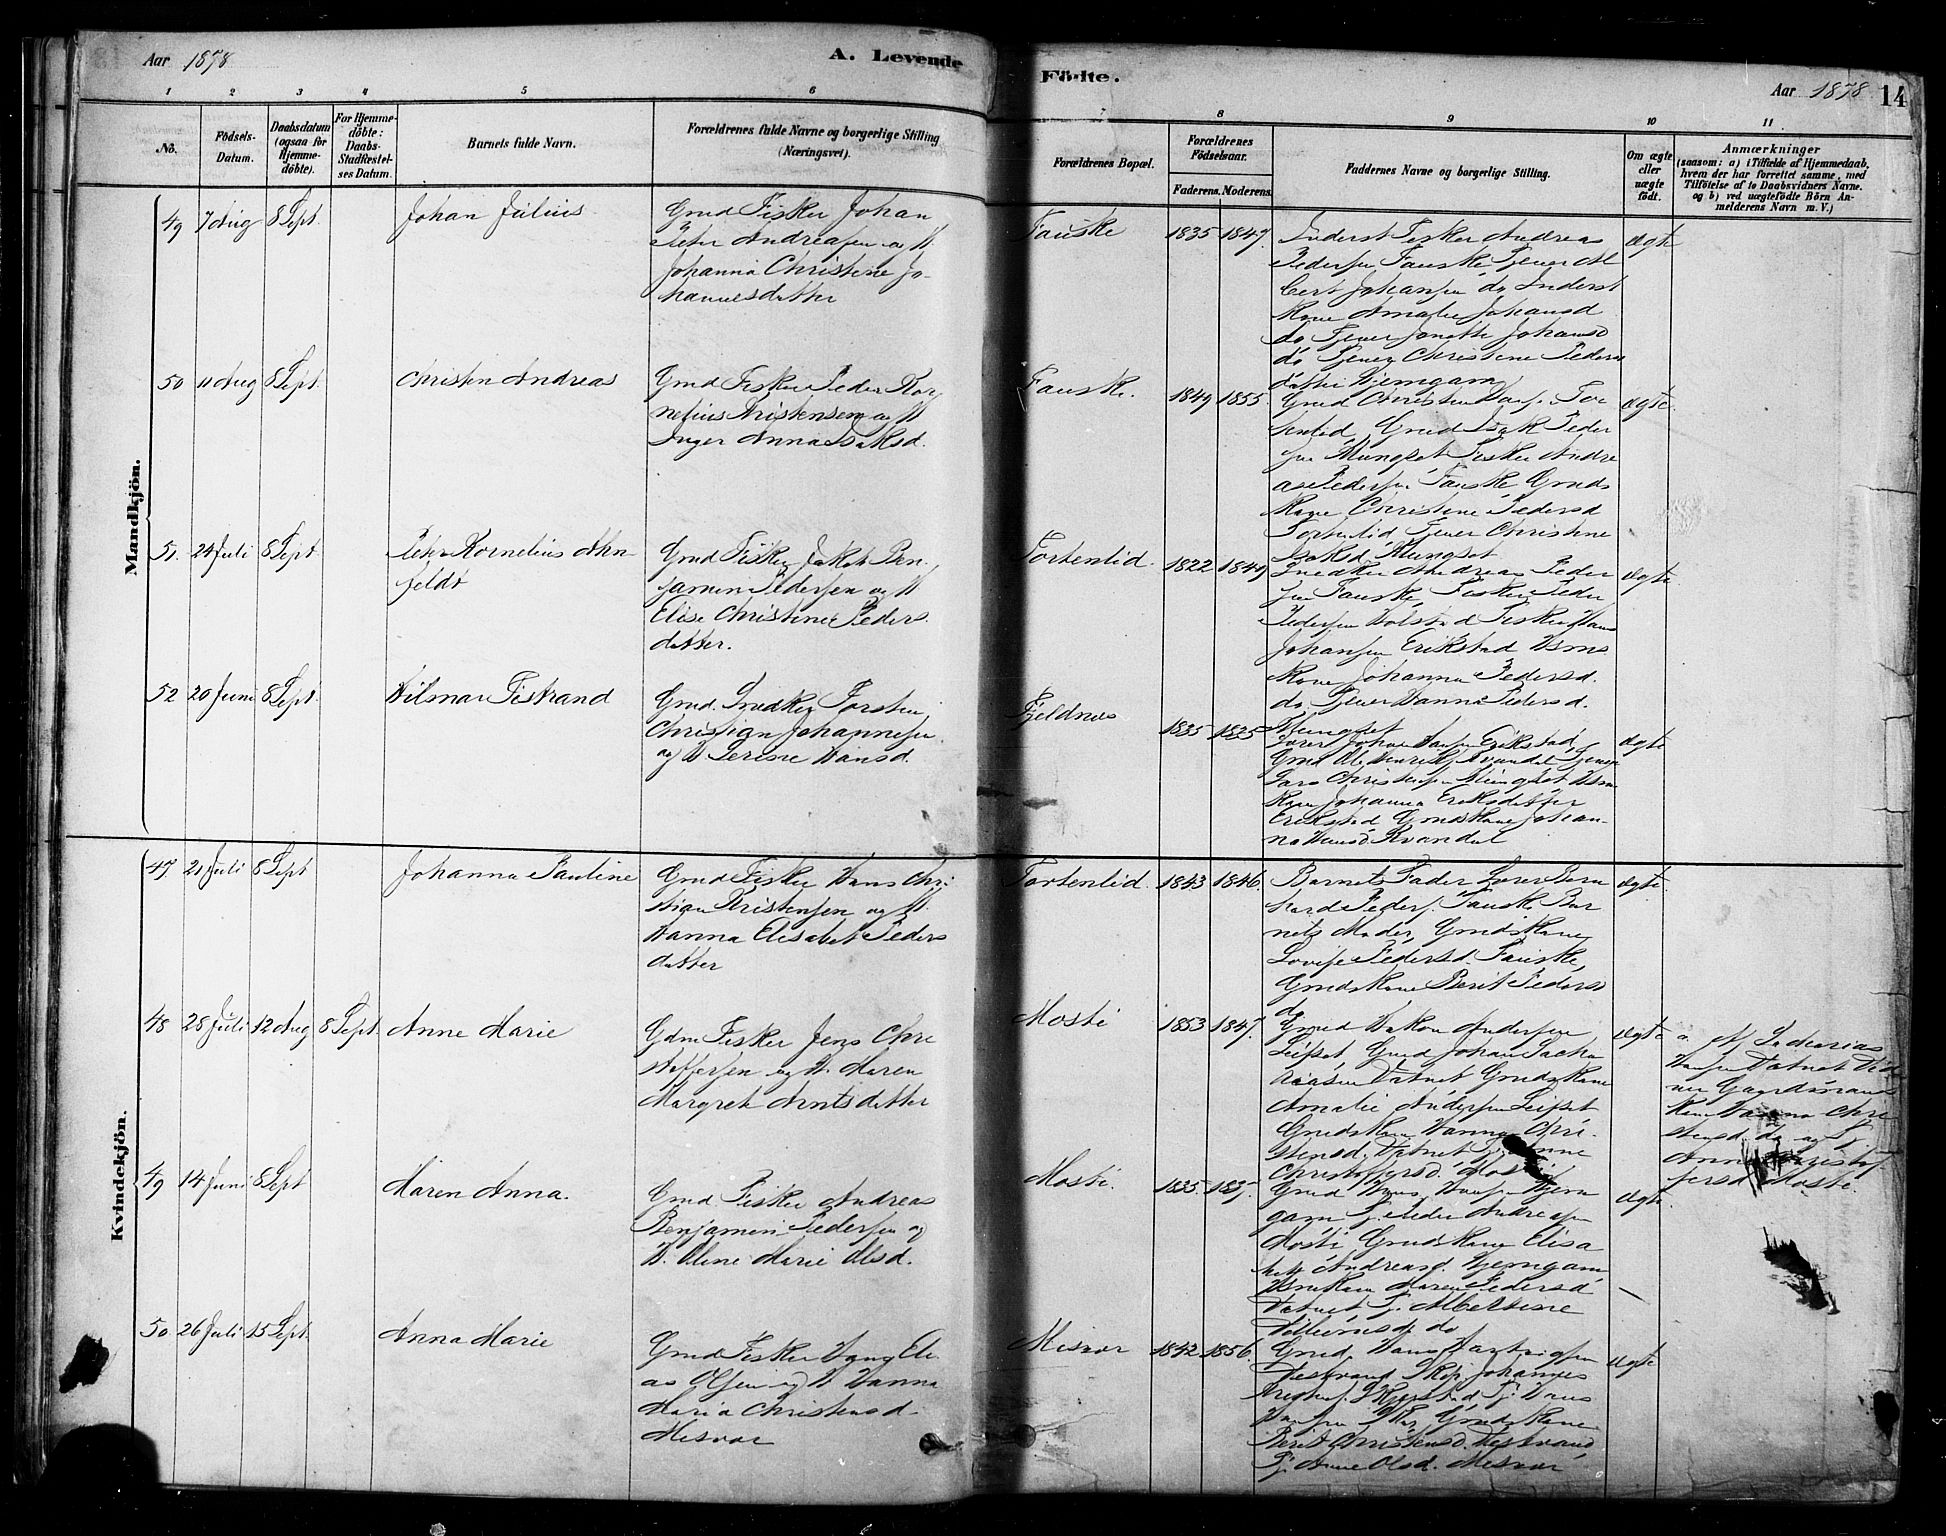 Aar 1878
A. Levende
Fødte.
Aar 1878
14
1 2 3 4 5 6 7 8 9 10 11
No.
Födsels-
Datum.
Daabsdatum
(ogsaa for
Hjemme-
döbte).
For Hjemme-
döbte:
Daabs-
Stadfæstel-
ses Datum.
Barnets fulde Navn.
Forældrenes fulde Navne og borgerlige Stilling
(Næringsvei).
Forældrenes Bopæl.
Forældrenes
Födselsaar.
Faderens. Moderens.
Faddernes Navne og borgerlige Stilling.
Om ægte
eller
uægte
födt.
Anmærkninger
(saasom: a) i Tilfælde af Hjemmedaab,
hvem der har forrettet samme, med
Tilföielse af to Daabsvidners Navne.
og b) ved uægtefödte Börn An-
melderens Navn m. V.)
Mandkjön.
49 7 Aug 8 Sept. Johan Julius
Gmd Fisker Johan
Peter Andreasen og H
Johanna Christine Jo-
hannesdatter
Fauske 1835 1847.
Inderst Fisker Andreas
Pedersen Fauske Tjener Al
bert Johansen do Inderst
Kone Amalie Johansd
do Tjener Jonette Johansd
do Tjener Christine Peders
datter Hjemgam
ægte
50 11 Aug 8 Sept. Christen Andreas
Gmd Fisker Peder Kor
nelius Kristensen og H
Inger Anna Isaksd.
Fauske. 1849 1855.
Gmd Christen Hansen Tor
tenlid, Gmd Isak Peder
sen Klungset Fisker Andre
as Pedersen Fauske Gmds
Kone Christine Pedersd
Tortenlid Tjener Christine
Isaksd Klungset
ægte.
51. 24 Juli 8 Sept. Peter Kornelius Ahn
feldt
Gmd Fisker Jakob Ben
jamin Pedersen og H
Elise Christine Peders
datter.
Tortenlid. 1822 1849
Snedker Andreas Peder
sen Fauske, Fisker Peder
Pedersen Holstad Fisker Hans
Johansen Erikstad Hsms
Kone Johanna Pedersd.
do Tjener Hanna Pedersd.
Klungset
ægte
52 20 Juni 8 Sept. Hilmar Tistrand
Gmd. Snedker Torsten
Christian Johannesen
og H Serene Hansd.
Fjeldnes 1835 1825
Lærer Johan Hansen Erikstad
Gmd Ole Henriks. Kvandal Tjener
Lars Christensen Klungset Hsm
Kone Johanna Eriksdatter
Erikstad Gmdskone Johan-
na Hansd Kvandal
ægte
Kvindekjön.
47. 21 Juli 8 Sept Johanna Pauline
Gmd Fisker Hans Chri
stian Kristensen og H.
Hanna Elisabet Peders
datter
Tortenlid. 1843 1846.
Barnets Fader Lærer Bern
hard Peders. Fauske Bar
nets Moder, Gmdskone
Lovise Pedersd. Fauske
Gmdskone Berit Pedersd
do
ægte.
48 28 Juli 12 Aug 8 Sept. Anne Marie
Gdm Fisker Jens Chri
stoffersen og H. Maren
Margret Arntsdatter
Mosti 1853 1847.
Gmd Hakon Andersen
Leifset, Gmd Johan Sacha
riasen Vatnet Gmdskone
Amalie Andersen Leifset
Gmdskone Hanna Chri-
stensd. Vatnet Tj. Anne
Christoffersd. Mosti
ægte
a. Af Sacharias
Hansen Vatnet Vid
ner Gaardmands
Kone Hanna Chri
stensd. do og Tj.
Anne Christof
fersd Mosti.
49 14 Juni 8 Sept Maren Anna.
Gmd Fisker Andreas
Benjamin Pedersen og
H. Oline Marie Olsd.
Mosti. 1835. 1837.
Gmd Hans Hansen Hjem
gam Tj. Peder Andreasen
Mosti Gmdskone Elisa
bet Andreasd. Hjemgam
Hsmkone Maren Pedersd
Vatnet Tj. Albertine
do
ægte.
50. 26 Juli 15 Sept. Anna Marie
Gmd Fisker Hans Eli
as Olsen og H Hanna
Maria Christensd.
Misvær
Misvær 1842 1856.
Gmd Hans Hartvigsen
Vestvand Johannes
Skjerstad Tj. Hans
Hansen Gmdskone
Berit Christensd. Vestvand
Tj. Anne Olsd. Misvær
ægte